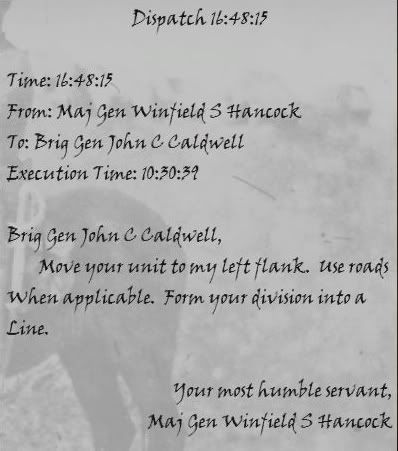 Dispatch 16:48:15
Time: 16:48:15
From: Maj Gen Winfield S Hancock
To: Brig Gen John C Caldwell
Execution Time: 10:30:39
Brig Gen John C Caldwell,
Move your unit to my left flank. Use roads
When applicable. Form your division into a
Line.
Your most humble servant,
Maj Gen Winfield S Hancock